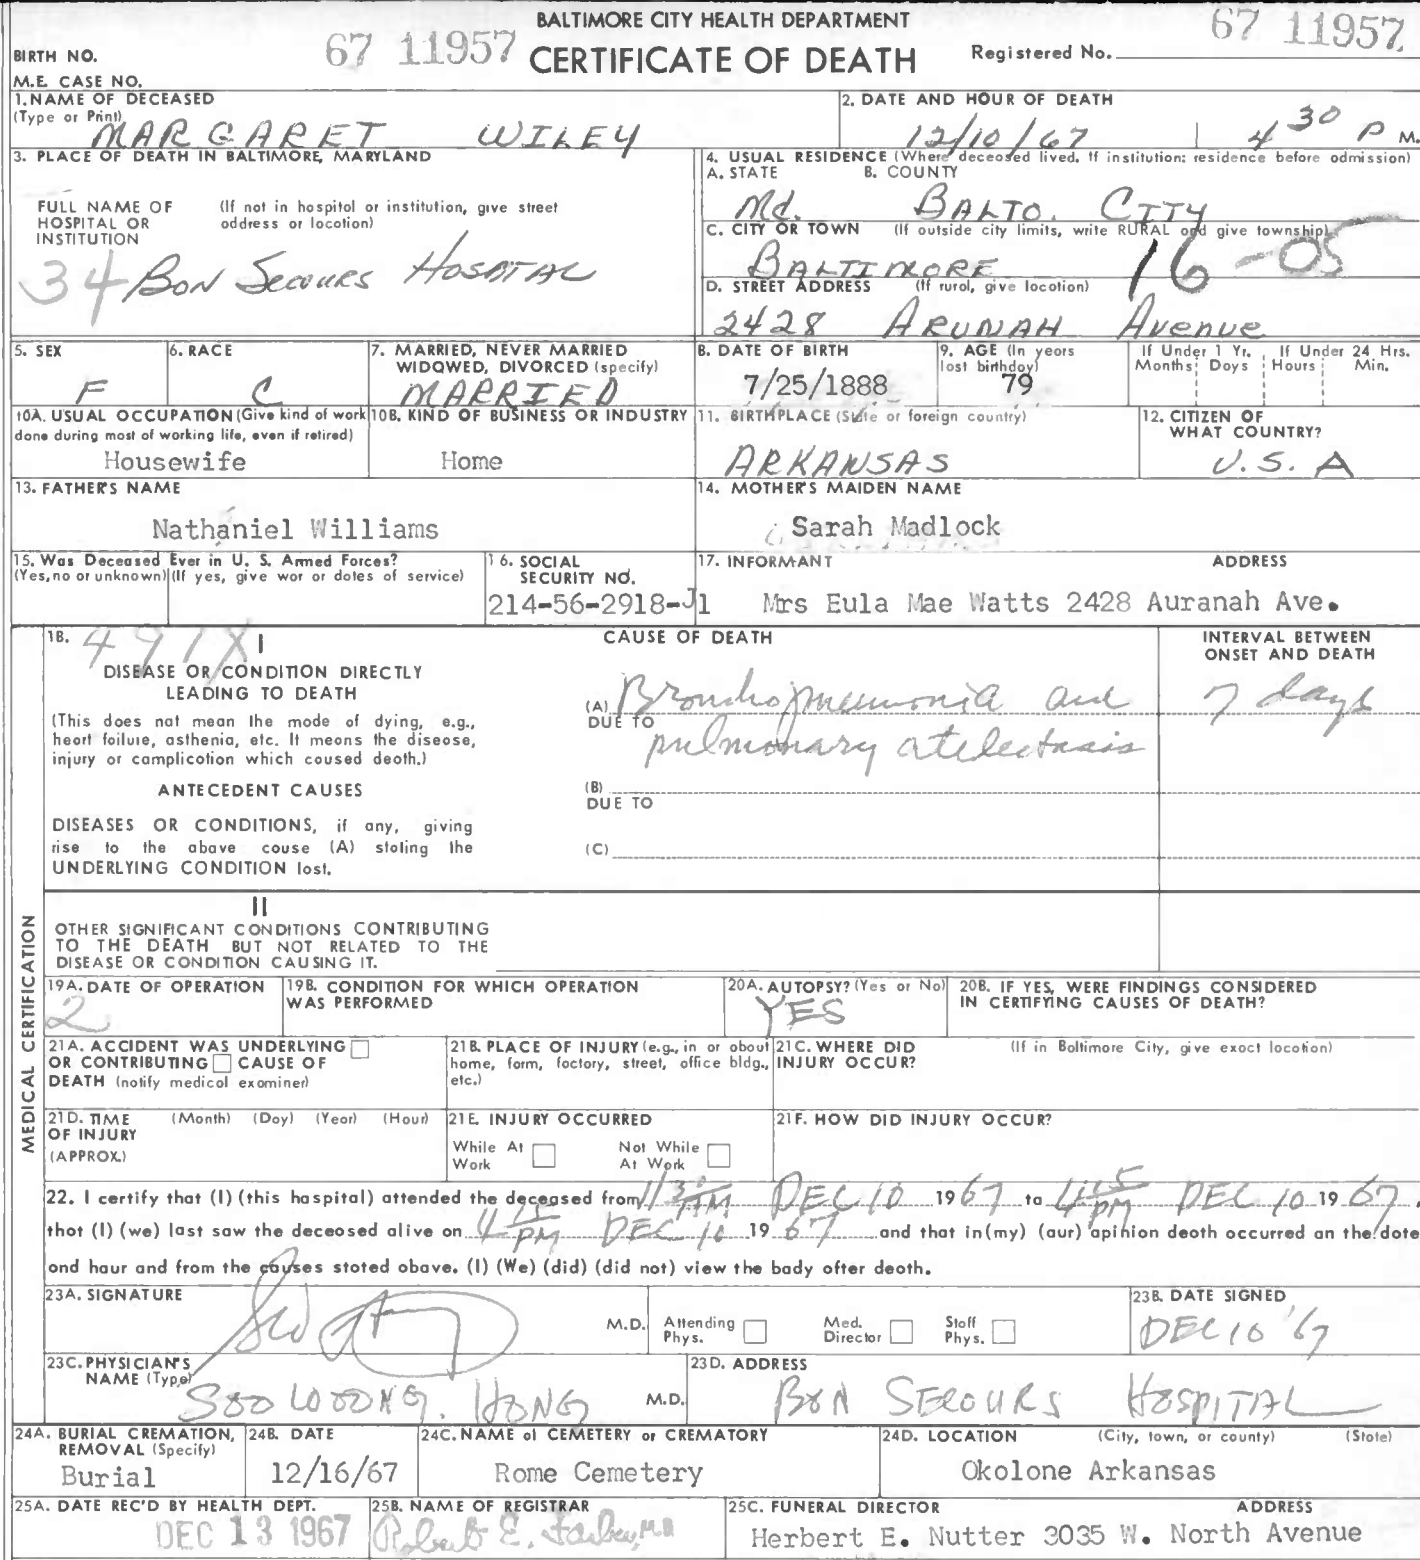 BALTIMORE CITY HEALTH DEPARTMENT
67 11957 CERTIFICATE OF DEATH Registered No. 67 11957
BIRTH NO.
M.E. CASE NO.
1. NAME OF DECEASED
(Type or Print)
MARGARET WILEY
2. DATE AND HOUR OF DEATH
12/10/67 4 30 P M.
3. PLACE OF DEATH IN BALTIMORE, MARYLAND
FULL NAME OF HOSPITAL OR INSTITUTION
(If not in hospital or institution, give street address or location)
34 BON SECOURS HOSPITAL
4. USUAL RESIDENCE (Where deceased lived. If institution: residence before admission)
A. STATE B. COUNTY
Md. BALTO. CITY
C. CITY OR TOWN (If outside city limits, write RURAL and give township)
BALTIMORE 16-05
D. STREET ADDRESS (If rural, give location)
2428 ARUNAH Avenue
5. SEX
F
6. RACE
C
7. MARRIED, NEVER MARRIED
WIDOWED, DIVORCED (specify)
MARRIED
8. DATE OF BIRTH
7/25/1888
9. AGE (In years
last birthday)
79
If Under 1 Yr. If Under 24 Hrs.
Months Days Hours Min.
10A. USUAL OCCUPATION (Give kind of work
done during most of working life, even if retired)
Housewife
10B. KIND OF BUSINESS OR INDUSTRY
Home
11. BIRTHPLACE (State or foreign country)
ARKANSAS
12. CITIZEN OF
WHAT COUNTRY?
U.S.A
13. FATHER'S NAME
Nathaniel Williams
14. MOTHER'S MAIDEN NAME
Sarah Madlock
15. Was Deceased Ever in U. S. Armed Forces?
(Yes, no or unknown) (If yes, give war or dates of service)
16. SOCIAL
SECURITY NO.
214-56-2918-J1
17. INFORMANT ADDRESS
Mrs Eula Mae Watts 2428 Auranah Ave.
MEDICAL CERTIFICATION
18. 491X I
DISEASE OR CONDITION DIRECTLY
LEADING TO DEATH
(This does not mean the mode of dying, e.g.,
heart failure, asthenia, etc. It means the disease,
injury or complication which caused death.)
ANTECEDENT CAUSES
DISEASES OR CONDITIONS, if any, giving
rise to the above cause (A) stating the
UNDERLYING CONDITION last.
CAUSE OF DEATH
(A) Bronchopneumonia and
DUE TO
pulmonary atelectasis
(B)
DUE TO
(C)
INTERVAL BETWEEN
ONSET AND DEATH
7 days
II
OTHER SIGNIFICANT CONDITIONS CONTRIBUTING
TO THE DEATH BUT NOT RELATED TO THE
DISEASE OR CONDITION CAUSING IT.
19A. DATE OF OPERATION
2
19B. CONDITION FOR WHICH OPERATION
WAS PERFORMED
20A. AUTOPSY? (Yes or No)
YES
20B. IF YES, WERE FINDINGS CONSIDERED
IN CERTIFYING CAUSES OF DEATH?
21A. ACCIDENT WAS UNDERLYING
OR CONTRIBUTING CAUSE OF
DEATH (notify medical examiner)
21B. PLACE OF INJURY (e.g., in or about
home, farm, factory, street, office bldg.,
etc.)
21C. WHERE DID (If in Baltimore City, give exact location)
INJURY OCCUR?
21D. TIME (Month) (Day) (Year) (Hour)
OF INJURY
(APPROX.)
21E. INJURY OCCURRED
While At Work
Not While At Work
21F. HOW DID INJURY OCCUR?
22. I certify that (I) (this hospital) attended the deceased from 11 30 AM DEC 10 1967 to 4 15 PM DEC 10 1967,
that (I) (we) last saw the deceased alive on 4 15 PM DEC 10 1967 and that in (my) (our) opinion death occurred on the date
and hour and from the causes stated above. (I) (We) (did) (did not) view the body after death.
23A. SIGNATURE
M.D.
Attending Phys.
Med. Director
Staff Phys.
23B. DATE SIGNED
DEC 10 '67
23C. PHYSICIAN'S
NAME (Type)
SOO WOONG. HONG M.D.
23D. ADDRESS
BON SECOURS HOSPITAL
24A. BURIAL CREMATION,
REMOVAL (Specify)
Burial
24B. DATE
12/16/67
24C. NAME of CEMETERY or CREMATORY
Rome Cemetery
24D. LOCATION (City, town, or county) (State)
Okolone Arkansas
25A. DATE REC'D BY HEALTH DEPT.
DEC 13 1967
25B. NAME OF REGISTRAR
Robert E. Farber, M.D.
25C. FUNERAL DIRECTOR ADDRESS
Herbert E. Nutter 3035 W. North Avenue